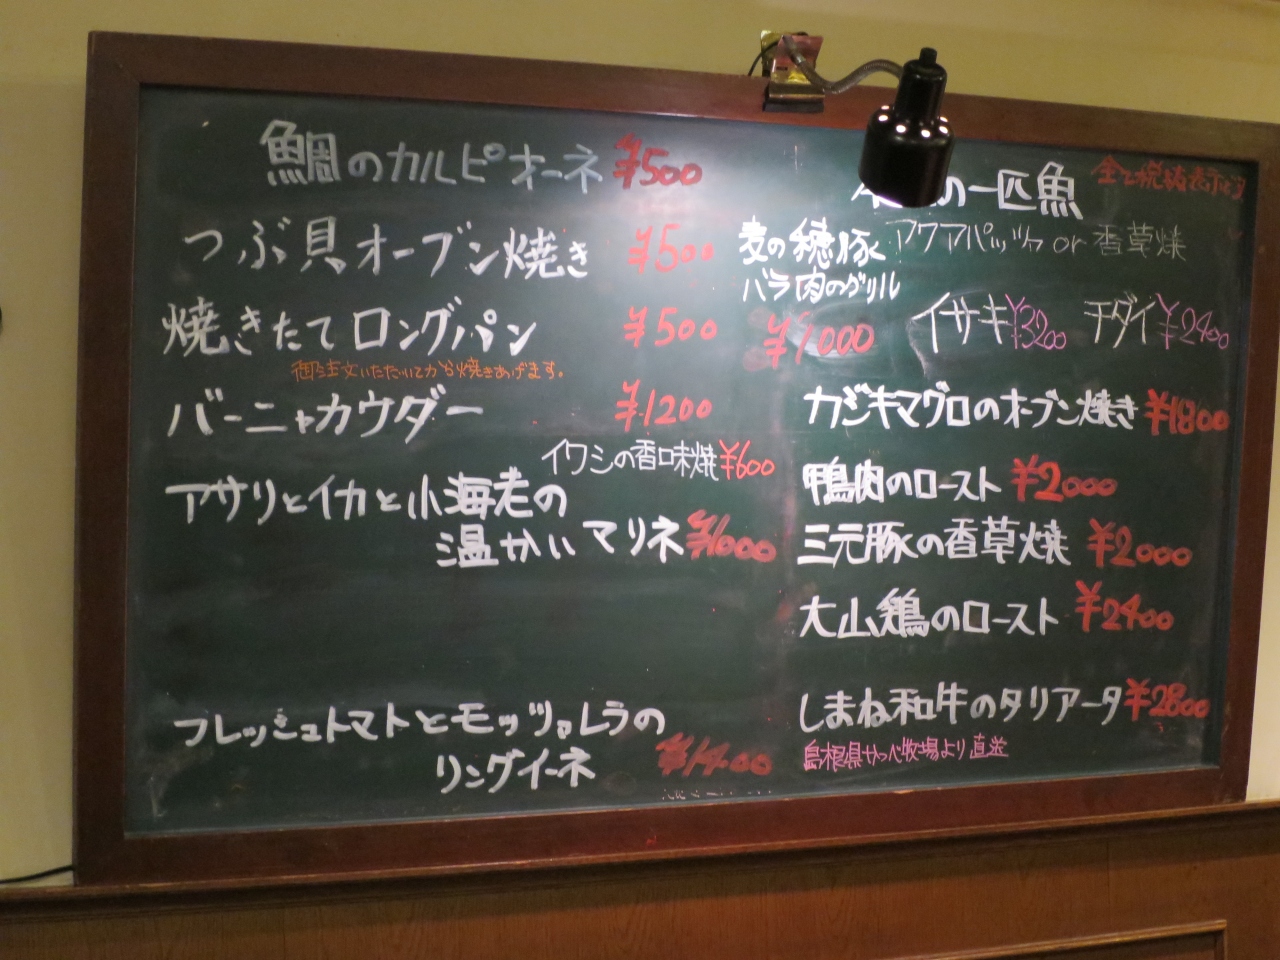 鯛のカルピオーネ ¥500
つぶ貝オーブン焼き ¥500
焼きたてロングパン ¥500
御注文いただいてから焼きあげます。
バーニャカウダー ¥1200
イワシの香味焼 ¥600
アサリとイカと小海老の
温かいマリネ ¥1000
フレッシュトマトとモッツァレラの
リングイーネ ¥1400
全て税抜表示です
の一匹魚
アクアパッツァ or 香草焼
麦の穂豚
バラ肉のグリル
¥1000
イサキ ¥3200 チダイ ¥2400
カジキマグロのオーブン焼き ¥1800
鴨肉のロースト ¥2000
三元豚の香草焼 ¥2000
大山鶏のロースト ¥2400
しまね和牛のタリアータ ¥2800
島根県やつべ牧場より直送